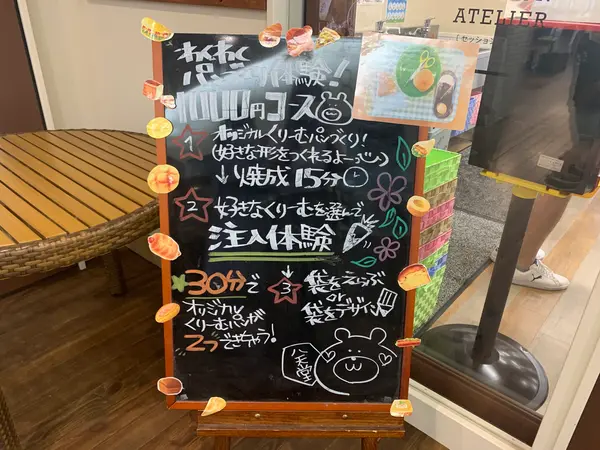 ATELIER
[セッショ
わくわく
パン作り体験!
1000円コース
1 オリジナルくりーむパンづくり!
(好きな形をつくれるよー)
↓焼成15分
2 好きなくりーむを選んで
注入体験
30分で
オリジナル
くりーむパンが
2つできちゃう!
↓
3 袋をえらぶ
or
袋をデザイン
八天堂